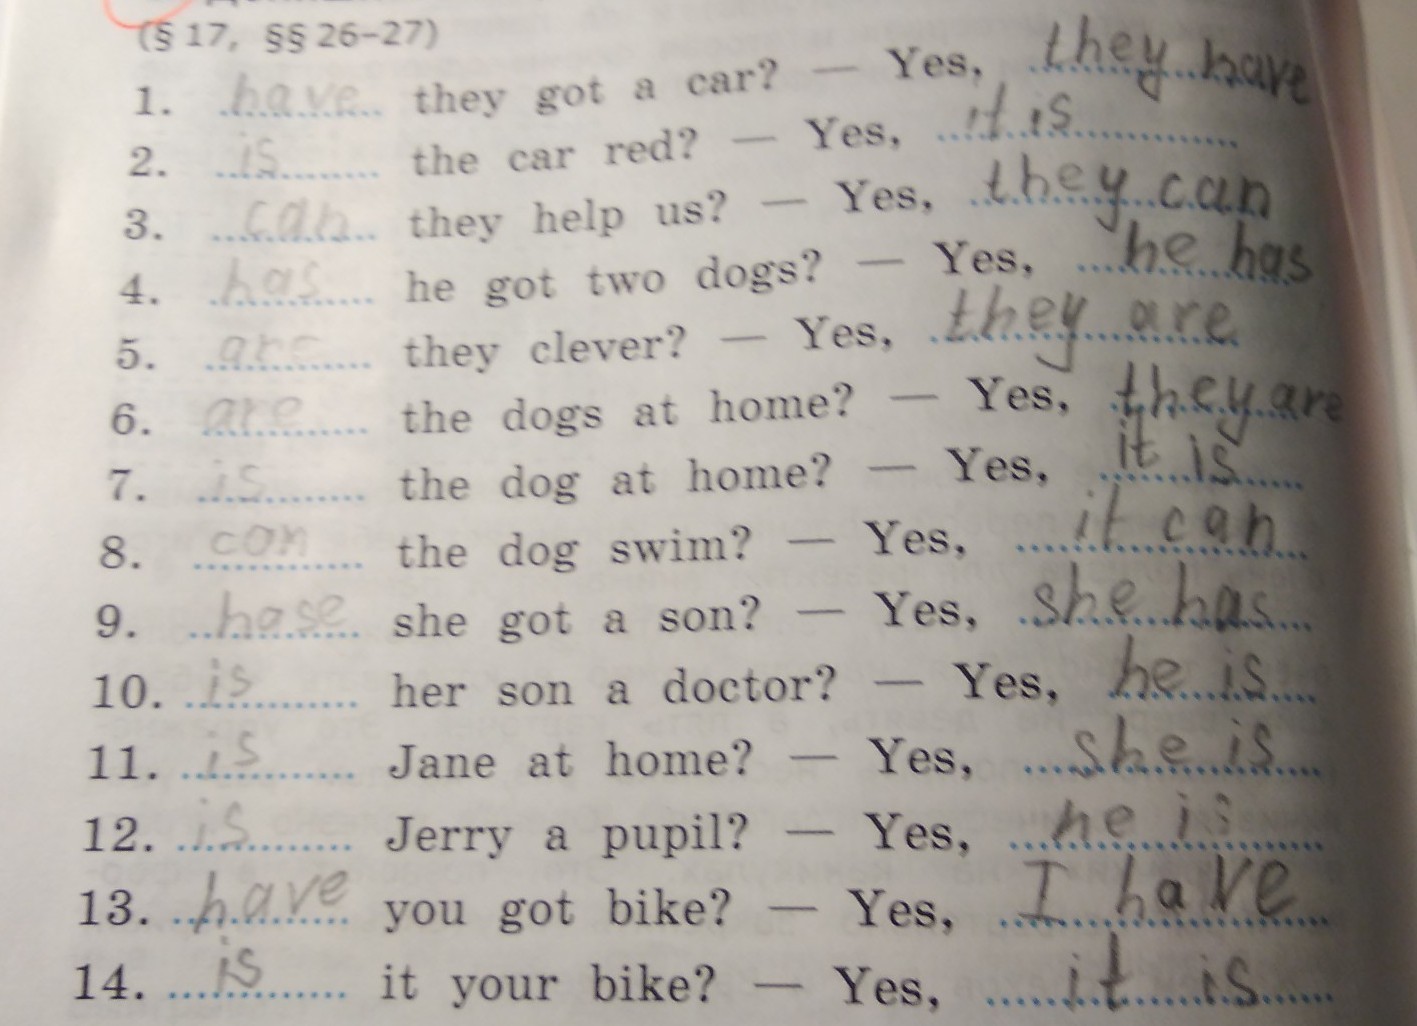 (§ 17, §§ 26–27)
1. have they got a car? — Yes, they have
2. is the car red? — Yes, it is
3. can they help us? — Yes, they can
4. has he got two dogs? — Yes, he has
5. are they clever? — Yes, they are
6. are the dogs at home? — Yes, they are
7. is the dog at home? — Yes, it is
8. can the dog swim? — Yes, it can
9. hase she got a son? — Yes, she has
10. is her son a doctor? — Yes, he is
11. is Jane at home? — Yes, she is
12. is Jerry a pupil? — Yes, he is
13. have you got bike? — Yes, I have
14. is it your bike? — Yes, it is